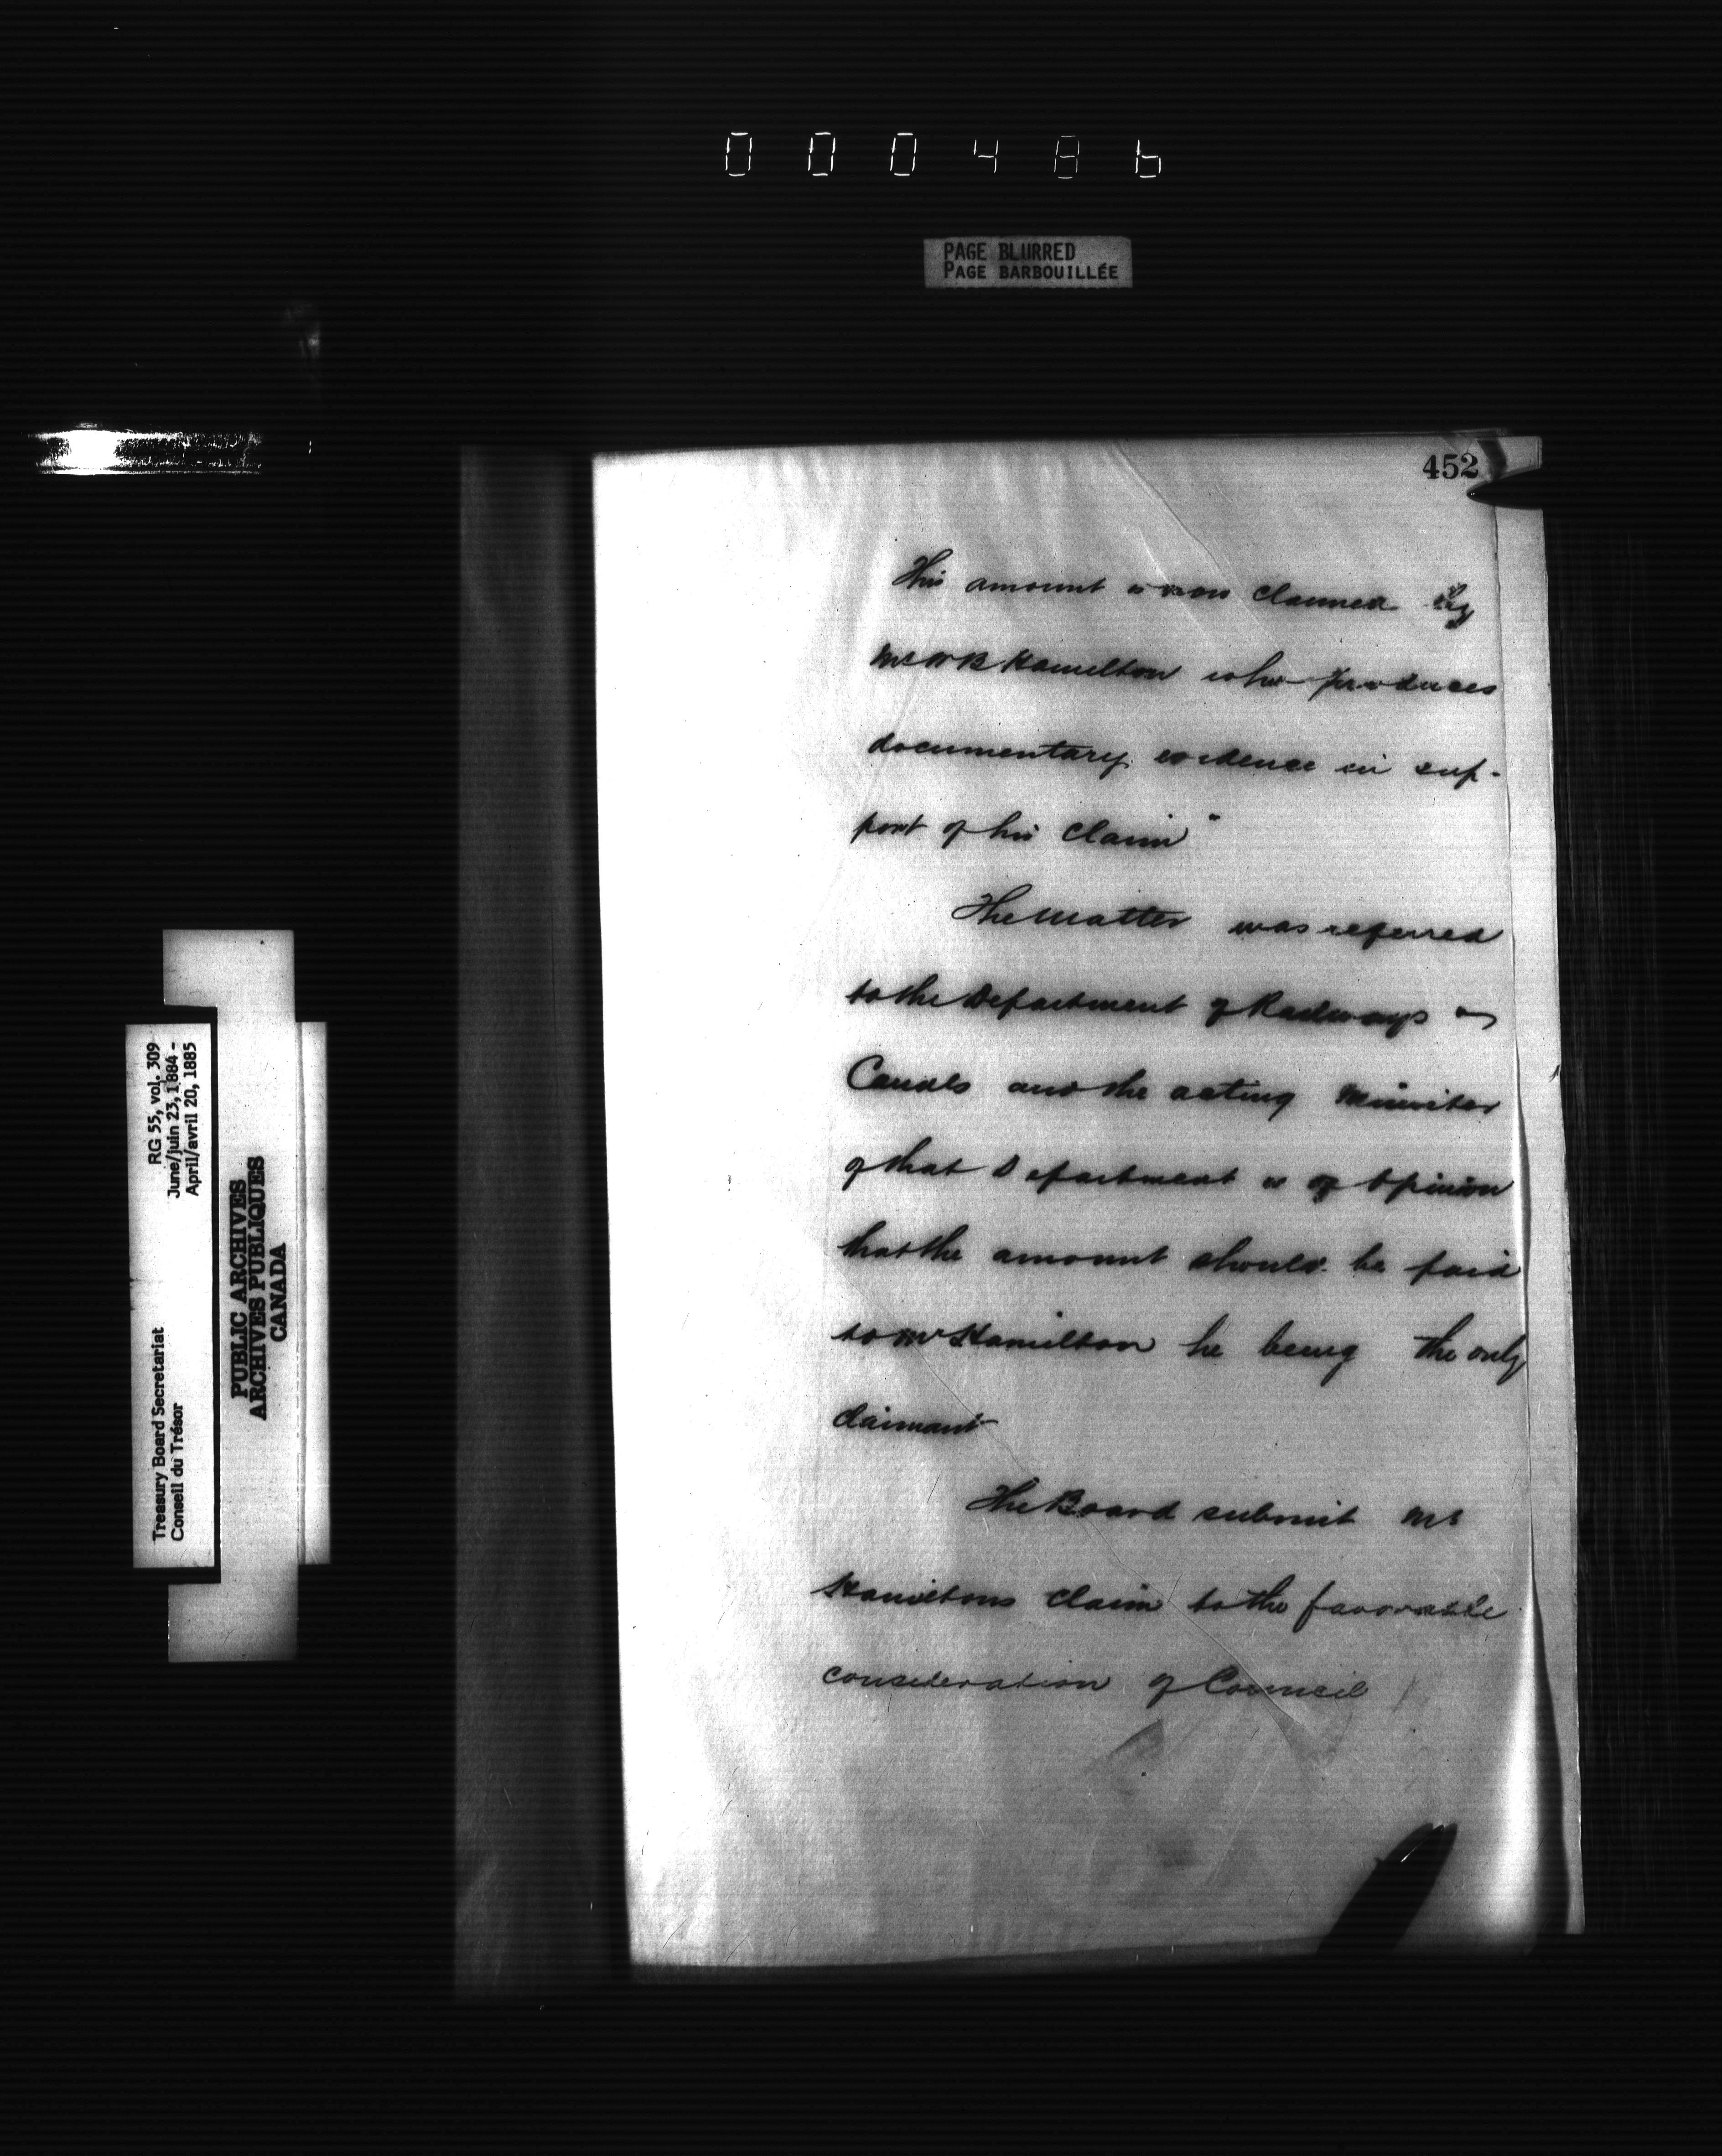 000486
PAGE BLURRED
PAGE BARBOUILLÉE
452
This amount is now claimed by
Mr W B Hamilton who produces
documentary evidence in sup-
port of his claim"
The matter was referred
to the Department of Railways &
Canals and the acting Minister
of that Department is of opinion
that the amount should be paid
to Mr Hamilton he being the only
claimant
The Board submit Mr
Hamiltons claim to the favorable
consideration of Council
RG 55, vol. 309
June/juin 23, 1884 -
April/avril 20, 1885
Treasury Board Secretariat
Conseil du Trésor
PUBLIC ARCHIVES
ARCHIVES PUBLIQUES
CANADA